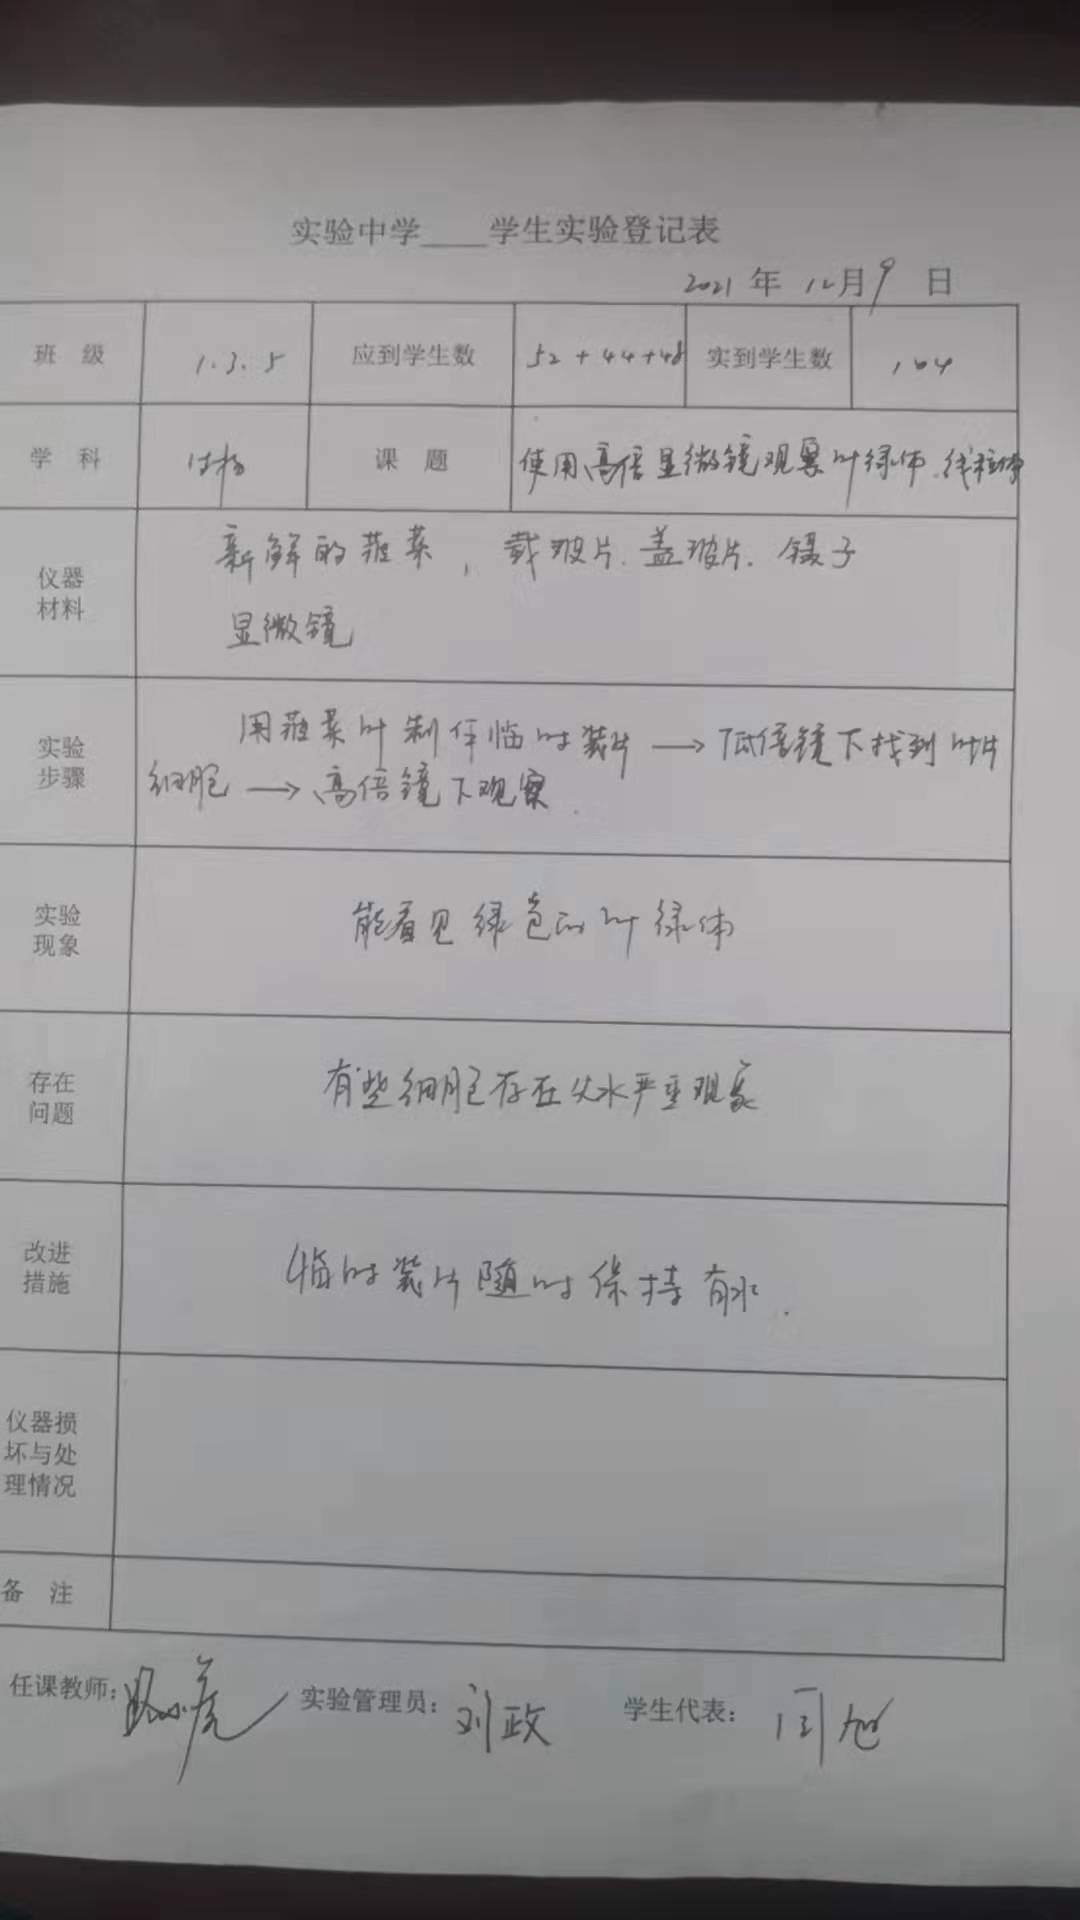 实验中学____学生实验登记表
2021 年 12月9 日
班 级 1.3.5 应到学生数 52+44+48 实到学生数
学 科 生物 课 题 使用高倍显微镜观察叶绿体.线粒体
仪器
材料
新鲜的菠菜，载玻片.盖玻片.镊子
显微镜
实验
步骤
用菠菜叶制作临时装片→低倍镜下找到叶片
细胞→高倍镜下观察.
实验
现象
能看见绿色的叶绿体
存在
问题
有些细胞存在失水严重现象
改进
措施
临时装片随时保持有水.
仪器损
坏与处
理情况
备 注
任课教师: 实验管理员: 刘政 学生代表: 闫旭